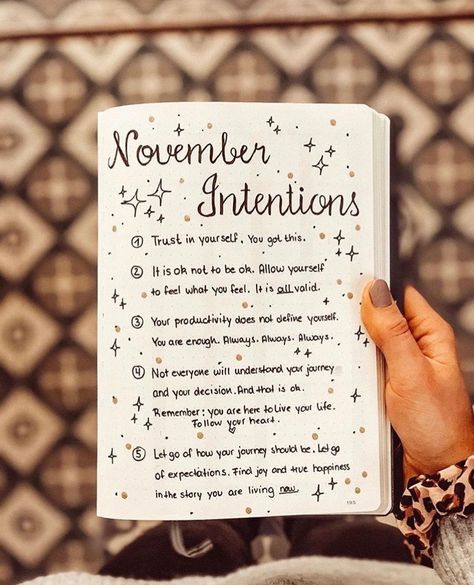 November
Intentions
1 Trust in yourself. You got this.
2 It is ok not to be ok. Allow yourself
to feel what you feel. It is all valid.
3 Your productivity does not define yourself.
You are enough. Always. Always. Always.
4 Not everyone will understand your journey
and your decision. And that is ok.
Remember: you are here to Live your Life.
Follow your heart.
5 Let go of how your journey should be. Let go
of expectations. Find joy and true happiness
in the story you are living now.
195